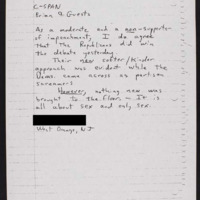 C-SPAN
Brian & Guests
As a moderate and a non-supporter
of impeachment, I do agree
that the Republicans did win
the debate yesterday.
Their new softer/kinder
approach was evident while the
Dems. came across as partisan
screamers.
However, nothing new was
brought to the floor. - It is
all about sex and only sex.
West Orange, NJ